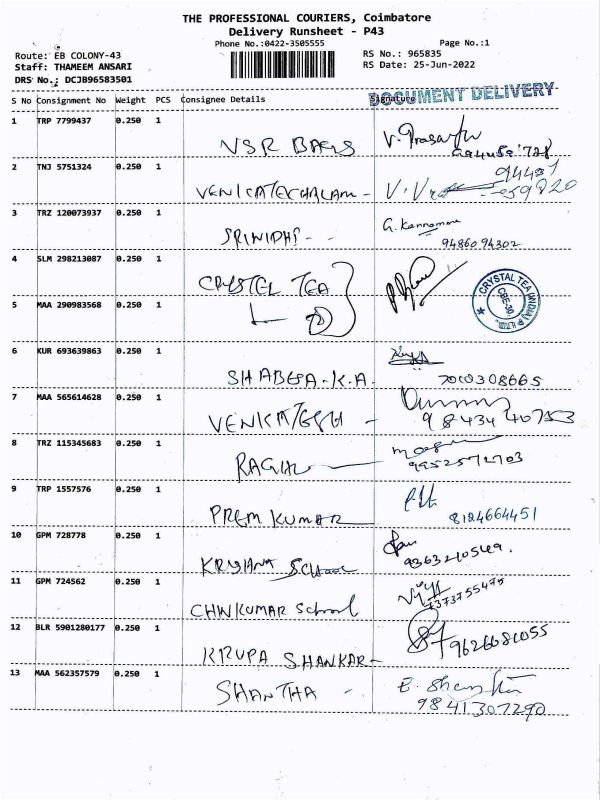 THE PROFESSIONAL COURIERS, Coimbatore
Delivery Runsheet - P43
Phone No.:0422-3505555 Page No.:1
Route: EB COLONY-43 RS No.: 965835
Staff: THAMEEM ANSARI RS Date: 25-Jun-2022
DRS No.: DCJB96583501
DOCUMENT DELIVERY
S No Consignment No Weight PCS Consignee Details Signature
1 TRP 7799437 0.250 1
NSR BAGS
2 TNJ 5751324 0.250 1
VENKATECHALAM -
3 TRZ 120073937 0.250 1 G. Kannamma
SRINIDHI - - 9486094302
4 SLM 298213087 0.250 1
CRYSTEL TEA
CRYSTAL TEA (INDIA) P LTD
CBE-30.
5 MAA 290983568 0.250 1
6 KUR 693639863 0.250 1
SHABEGA.K.A. 7010308665
7 MAA 565614628 0.250 1
VENKATESH - 9843440753
8 TRZ 115345683 0.250 1
RAGHU 9952572703
9 TRP 1557576 0.250 1
PREM KUMAR 8124664451
10 GPM 728778 0.250 1
KRISHNA School 9363210549.
11 GPM 724562 0.250 1
CHINKUMAR School 7373755475
12 BLR 5901280177 0.250 1
KRUPA SHANKAR - 9626681055
13 MAA 562357579 0.250 1
SHANTHA - E. Shantha
9841307290